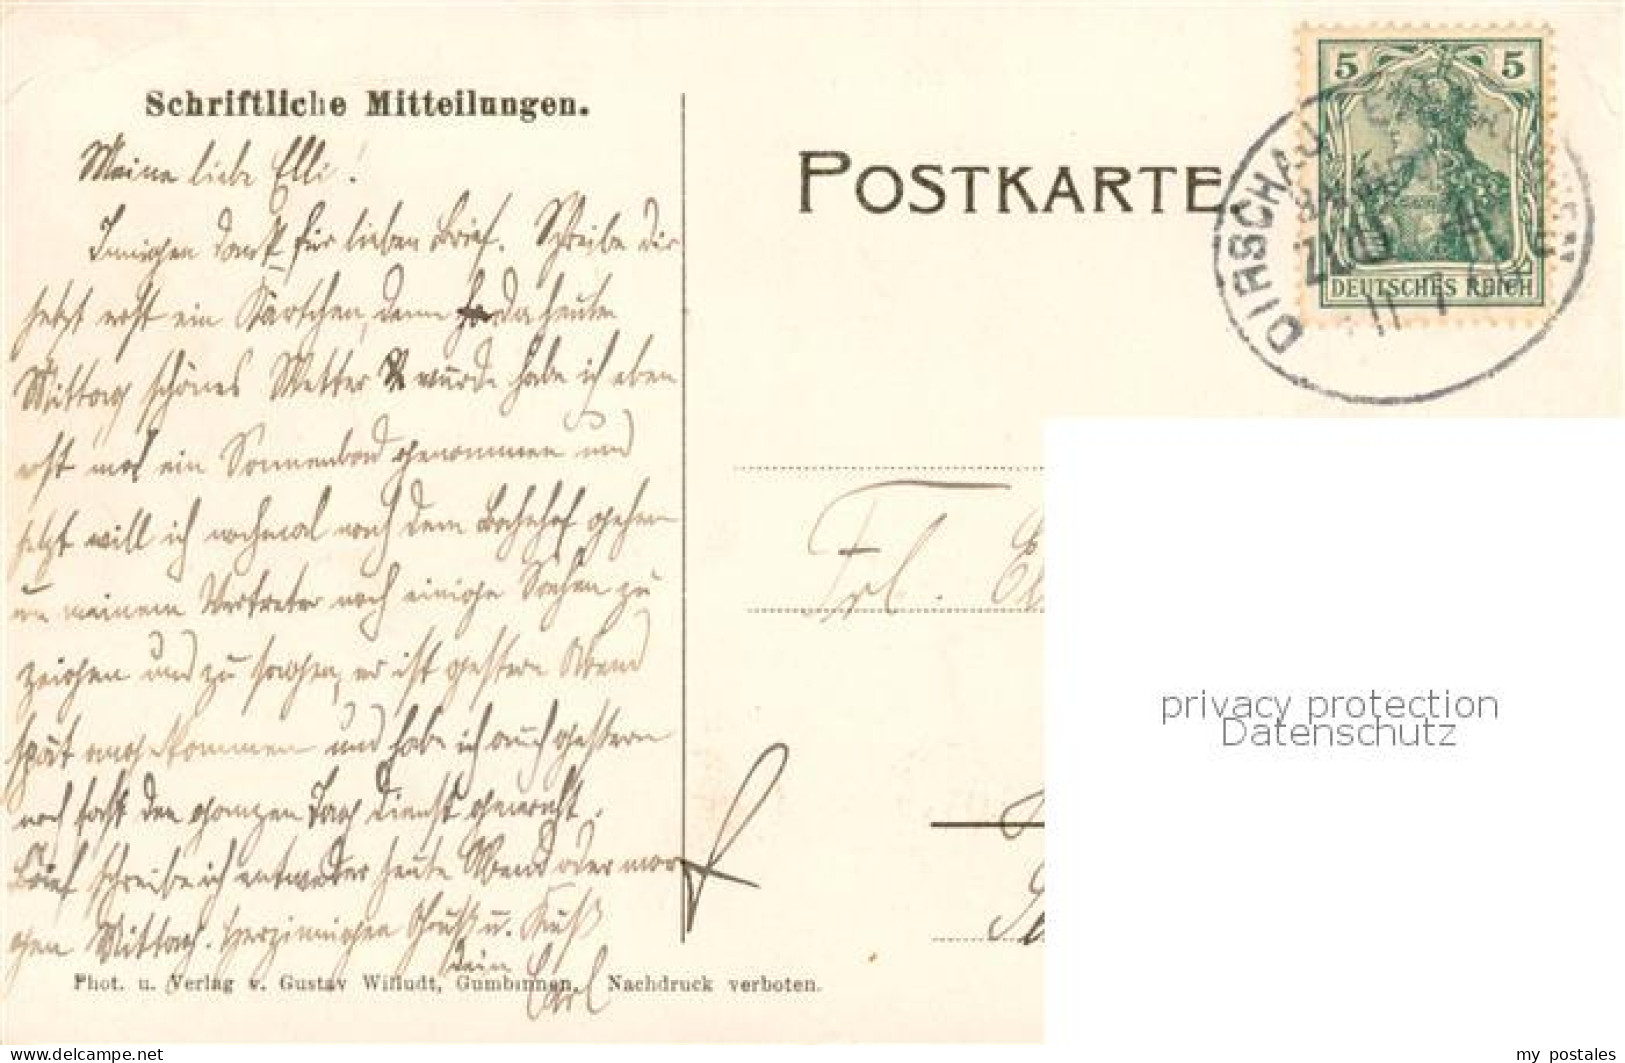 Schriftliche Mitteilungen.
Meine liebe Elli!
Innigen Dank für lieben Brief. Schreibe dir
jetzt erst ein Kärtchen, denn da heute
Mittag schönes Wetter wurde habe ich eben
erst mal ein Sonnenbad genommen und
jetzt will ich nochmal nach dem Bahnhof gehen
um meinem Vertreter noch einige Sachen zu
zeigen und zu sagen, er ist gestern Abend
spät angekommen und habe ich auch gestern
noch fast den ganzen Tag Dienst gemacht.
Brief schreibe ich entweder heute Abend oder mor
gen Mittag. Herzinnigen Gruß u. Kuß
dein
Carl
Phot. u. Verlag v. Gustav Willudt, Gumbinnen. Nachdruck verboten.
POSTKARTE
5 5
DEUTSCHES REICH
DIRSCHAU
ZUG
11 7
Frl.
privacy protection
Datenschutz
www.delcampe.net
my_postales